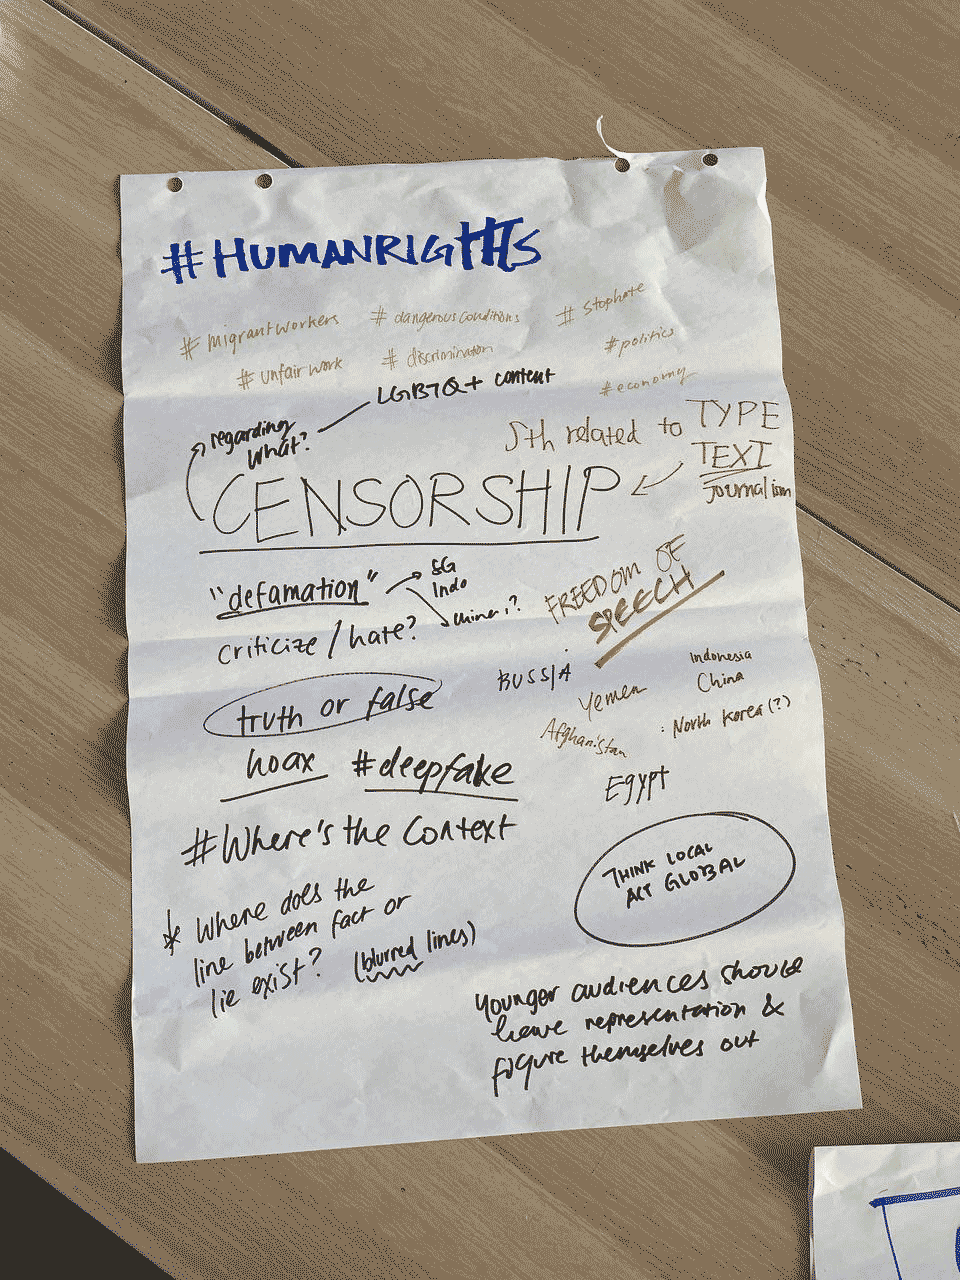 #HUMANRIGHTS
#migrantworkers
#dangerousconditions
#stophate
#unfairwork
#discrimination
#politics
#economy
LGBTQ+ content
regarding
what?
Sth related to TYPE
TEXT
journalism
CENSORSHIP
"defamation"
SG
Indo
China?
criticize/hate?
FREEDOM OF
SPEECH
truth or false
RUSSIA
Yemen
Indonesia
China
Afghanistan
North Korea(?)
Egypt
hoax #deepfake
#Where's the Context
THINK LOCAL
ACT GLOBAL
* Where does the
line between fact or
lie exist? (blurred lines)
younger audiences should
have representation &
figure themselves out